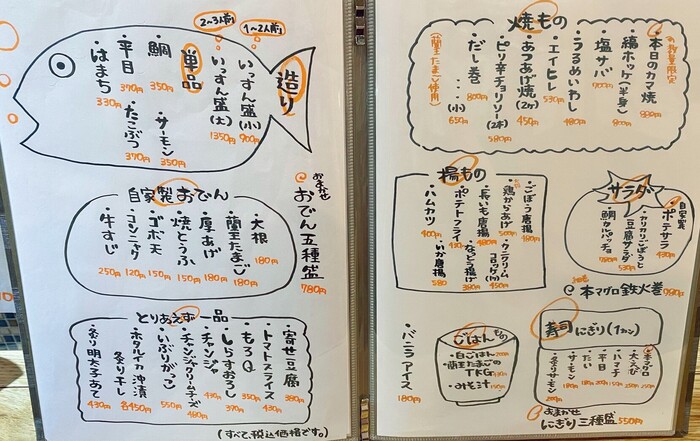 造り
1〜2人前
・いっすん盛(小) 900円
2〜3人前
・いっすん盛(大) 1350円
単品
・鯛 350円
・サーモン 350円
・平目 370円
・たこぶつ 370円
・はまち 330円
自家製おでん
・大根 180円
・蘭王たまご 180円
・厚あげ 180円
・焼とうふ 150円
・ゴボ天 150円
・コンニャク 120円
・牛すじ 250円
おまかせ
おでん五種盛
780円
とりあえず一品
・寄せ豆腐 380円
・トマトスライス 430円
・もろQ
・しらすおろし 370円
・チャンジャ
・チャンジャクリームチーズ 480円
・いぶりがっこ 550円
・ホタルイカ沖漬
炙り干し
各450円
・炙り明太子あて 430円
(すべて、税込価格です。)
焼もの
お数量限定
・本日のカマ焼 880円
・縞ホッケ(半身) 800円
・塩サバ
・うるめいわし 480円
・エイヒレ 530円
・あつあげ焼(2ヶ) 450円
・ピリ辛チョリソー(2本) 580円
・だし巻 800円
・・・(小) 650円
(蘭王たまご使用)
揚もの
・ごぼう唐揚 480円
・鶏からあげ 500円
・カニクリームコロッケ(1ヶ) 450円
・長いも唐揚 480円
・なんこつ唐揚 380円
・ポテトフライ 400円
・いか唐揚 580
・ハムカツ 400円
サラダ
自家製
・ポテサラ 430円
・カリカリごぼうと豆腐サラダ 530円
・鯛カルパッチョ 780円
@ 本マグロ鉄火巻 980円
・バニラアイス 180円
ごはんもの
・白ごはん 200円
・蘭王たまごのTKG
・みそ汁
寿司 にぎり(1カン)
・本マグロ
・大えび
・ハマチ
・平目
・たい
・サーモン
・炙りサーモン
おまかせ
にぎり三種盛 550円